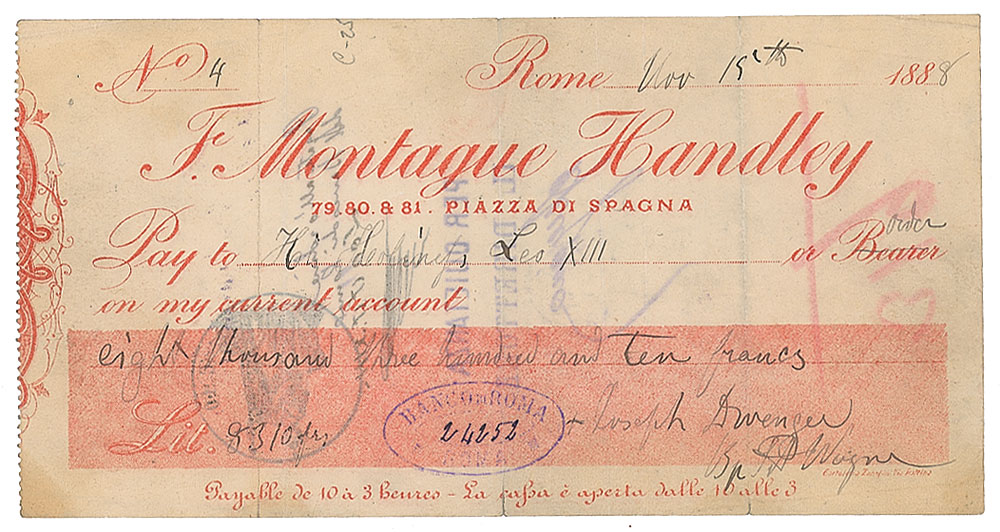 C-25
No 4 Rome Nov 15th 1888
F. Montague Handley
79.80.& 81. PIAZZA DI SPAGNA
order
Pay to His Leo XIII or Bearer
on my current account
eight thousand three hundred and ten francs
Lit. 8310 frs
BANCO DI ROMA
24252
+ Joseph Dwenger
Bp. Ft Wayne
Payable de 10 à 3 heures - La cassa è aperta dalle 10 alle 3